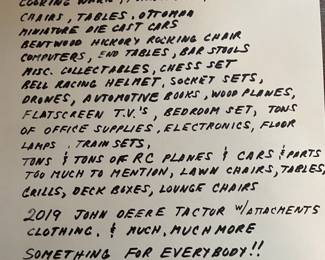 COOKING WARE,
CHAIRS, TABLES, OTTOMAN
MINIATURE DIE CAST CARS
BENTWOOD HICKORY ROCKING CHAIR
COMPUTERS, END TABLES, BAR STOOLS
MISC. COLLECTABLES, CHESS SET
BELL RACING HELMET, SOCKET SETS,
DRONES, AUTOMOTIVE BOOKS, WOOD PLANES,
FLATSCREEN T.V.'S, BEDROOM SET, TONS
OF OFFICE SUPPLIES, ELECTRONICS, FLOOR
LAMPS, TRAIN SETS,
TONS & TONS OF RC PLANES & CARS & PARTS
TOO MUCH TO MENTION, LAWN CHAIRS, TABLES,
GRILLS, DECK BOXES, LOUNGE CHAIRS
2019 JOHN DEERE TACTOR W/ATTACMENTS
CLOTHING, & MUCH, MUCH MORE
SOMETHING FOR EVERYBODY!!